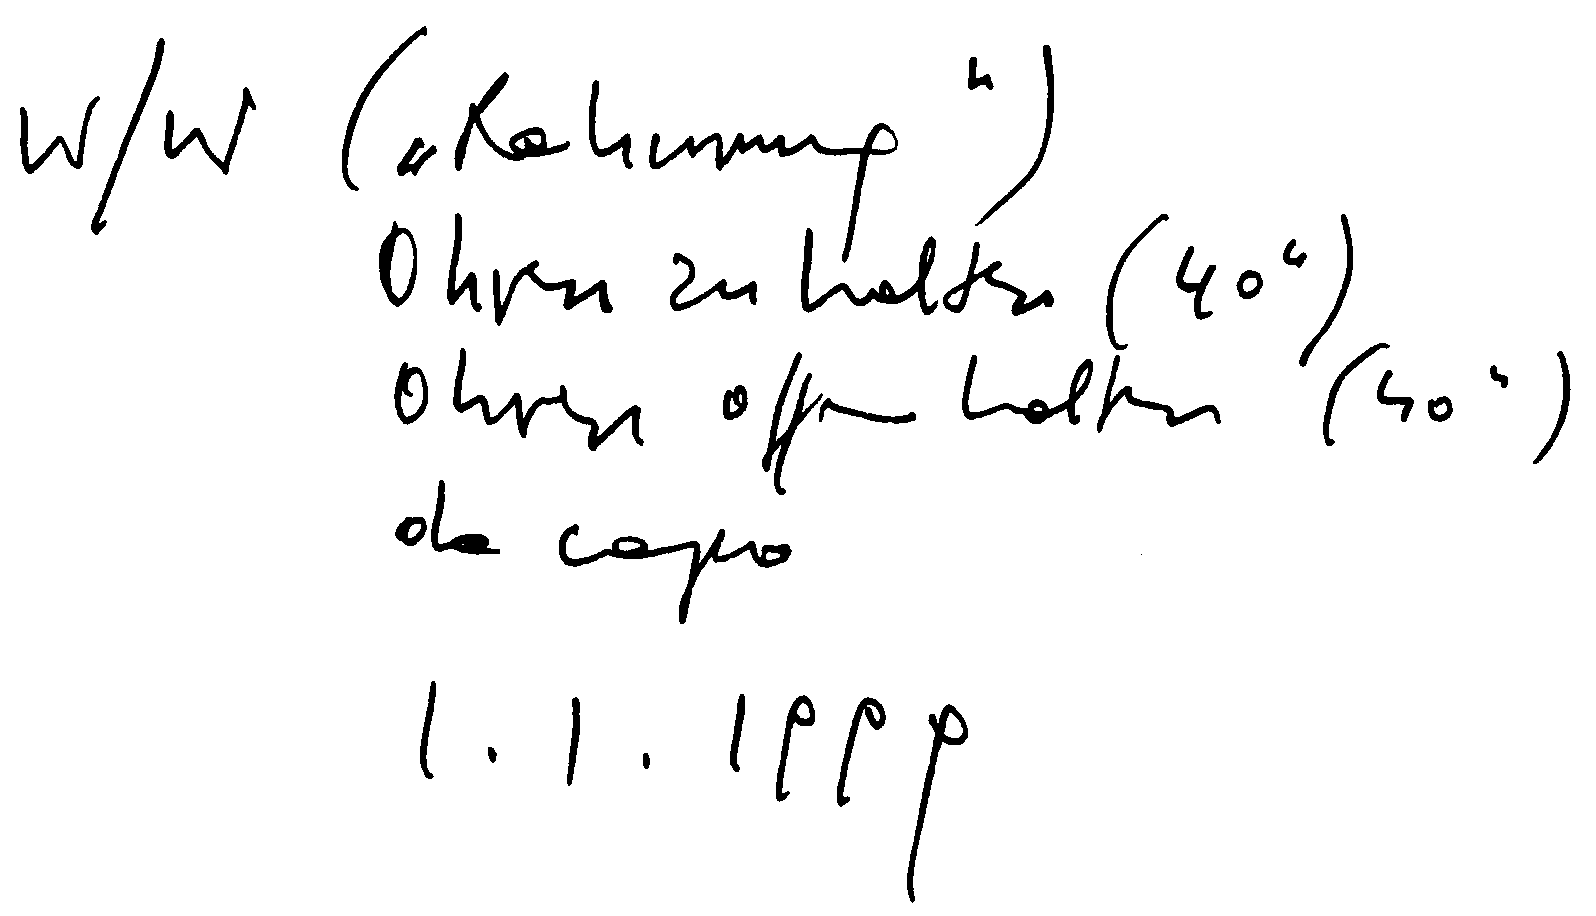 W/W („Rahmung“)
Ohren zu halten (40“)
Ohren offen halten (40“)
da capo
1.1.1999